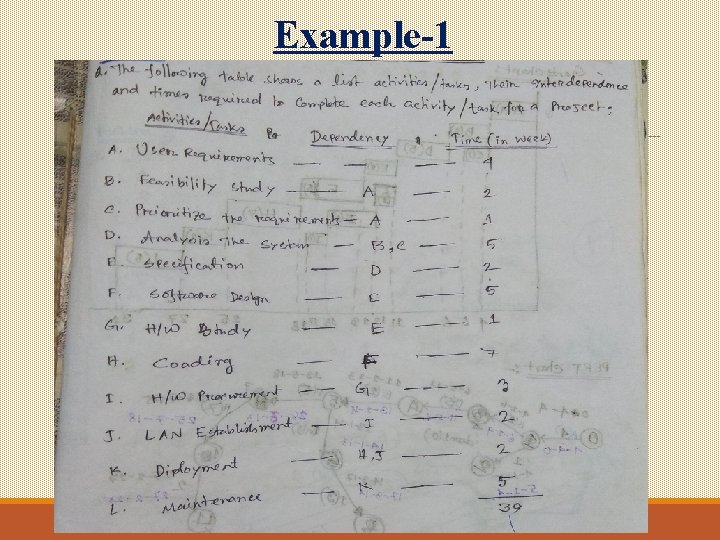 Example-1
Q. The following table shows a list activities/tasks, their interdependence
and times required to complete each activity/task for a Project:
Activities/Tasks Dependency Time (in week)
A. User Requirements — — 4
B. Feasibility Study — A — 2
C. Prioritize the requirements — A — 1
D. Analysis the System — B,C — 5
E. Specification — D — 2
F. Software Design — E — 5
G. H/W Study — E — 1
H. Coading — F — 7
I. H/W Procurement — G — 3
J. LAN Establishment — I — 2
K. Diployment — H,J — 2
L. Maintenance — K — 5
39